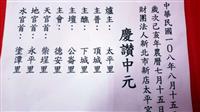 中華民國一0八年八月十五
歲次己亥年農曆七月十五日
財團法人新北市新店太平宮
慶讚中元
爐主：太平里
主會：頂城里
主醮：下城里
主壇：公崙里
主普：德安里
天官首：柴埕里
地官首：永平里
水官首：塗潭里